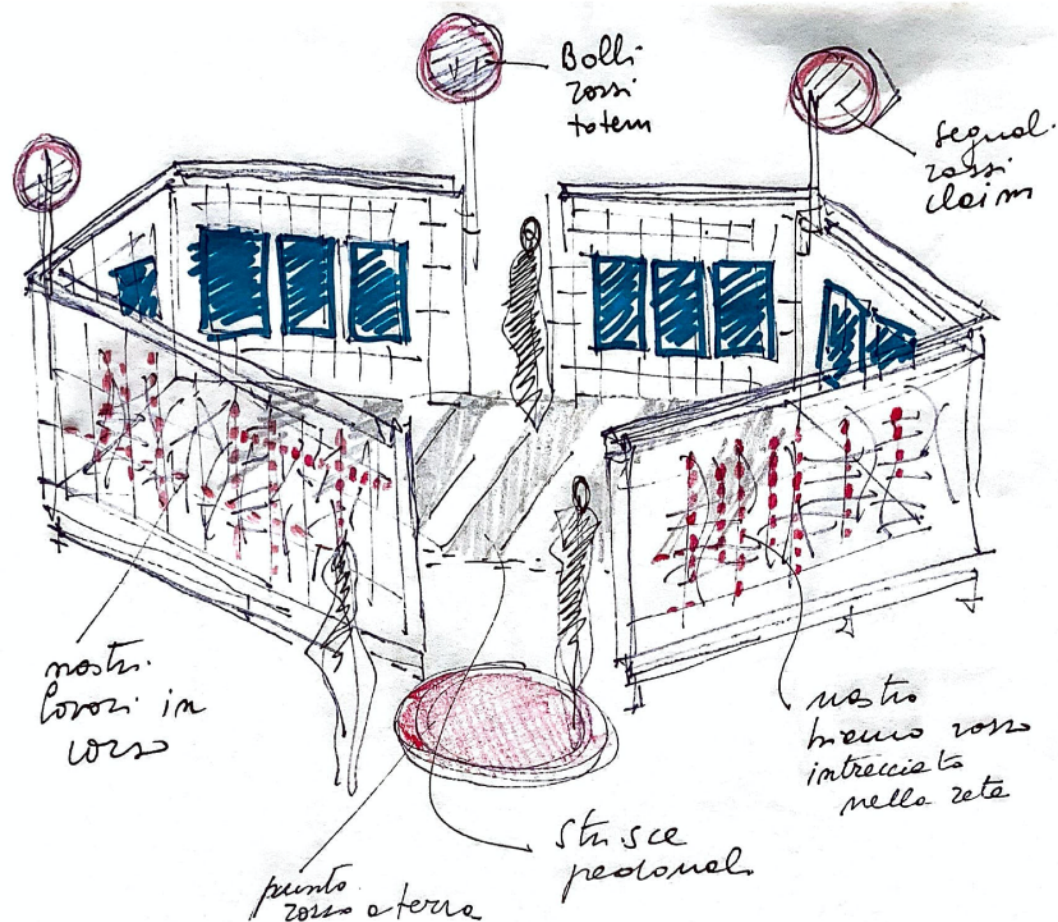 Bolli
rossi
totem
segnal.
rossi
claim
nastri
lavori in
corso
nastro
bianco rosso
intrecciato
nella rete
strisce
pedonal.
punto
rosso a terra